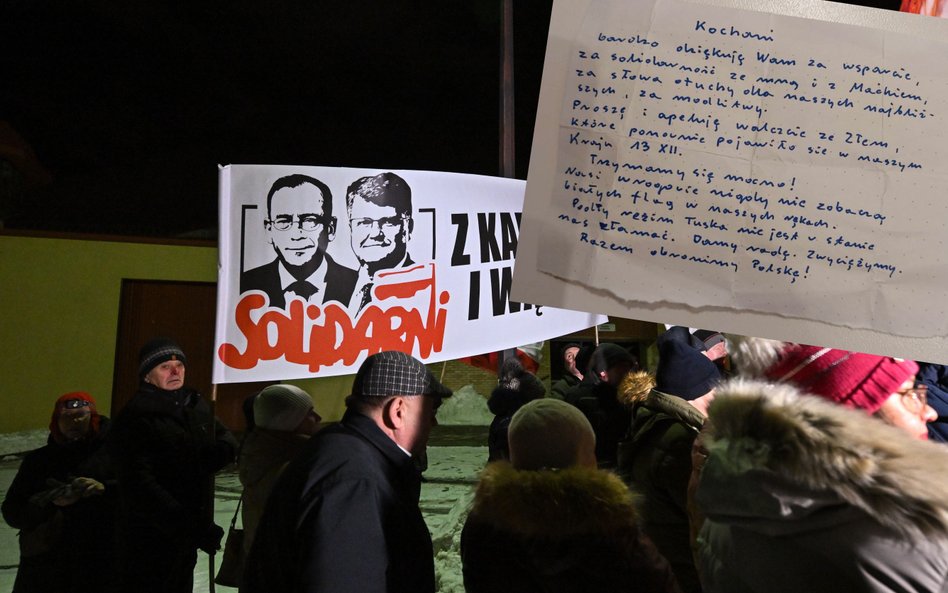 Kochani
bardzo dziękuję Wam za wsparcie,
za solidarność ze mną i z Maćkiem,
za słowa otuchy dla naszych najbliż-
szych, za modlitwy.
Proszę i apeluję walczcie ze Złem,
które ponownie pojawiło się w naszym
Kraju 13 XII.
Trzymamy się mocno!
Nasi wrogowie nigdy nie zobaczą
białych flag w naszych rękach.
Podły reżim Tuska nie jest w stanie
nas złamać. Damy radę. Zwyciężymy.
Razem obronimy Polskę!
SOLIDARNI
Z KA
I W